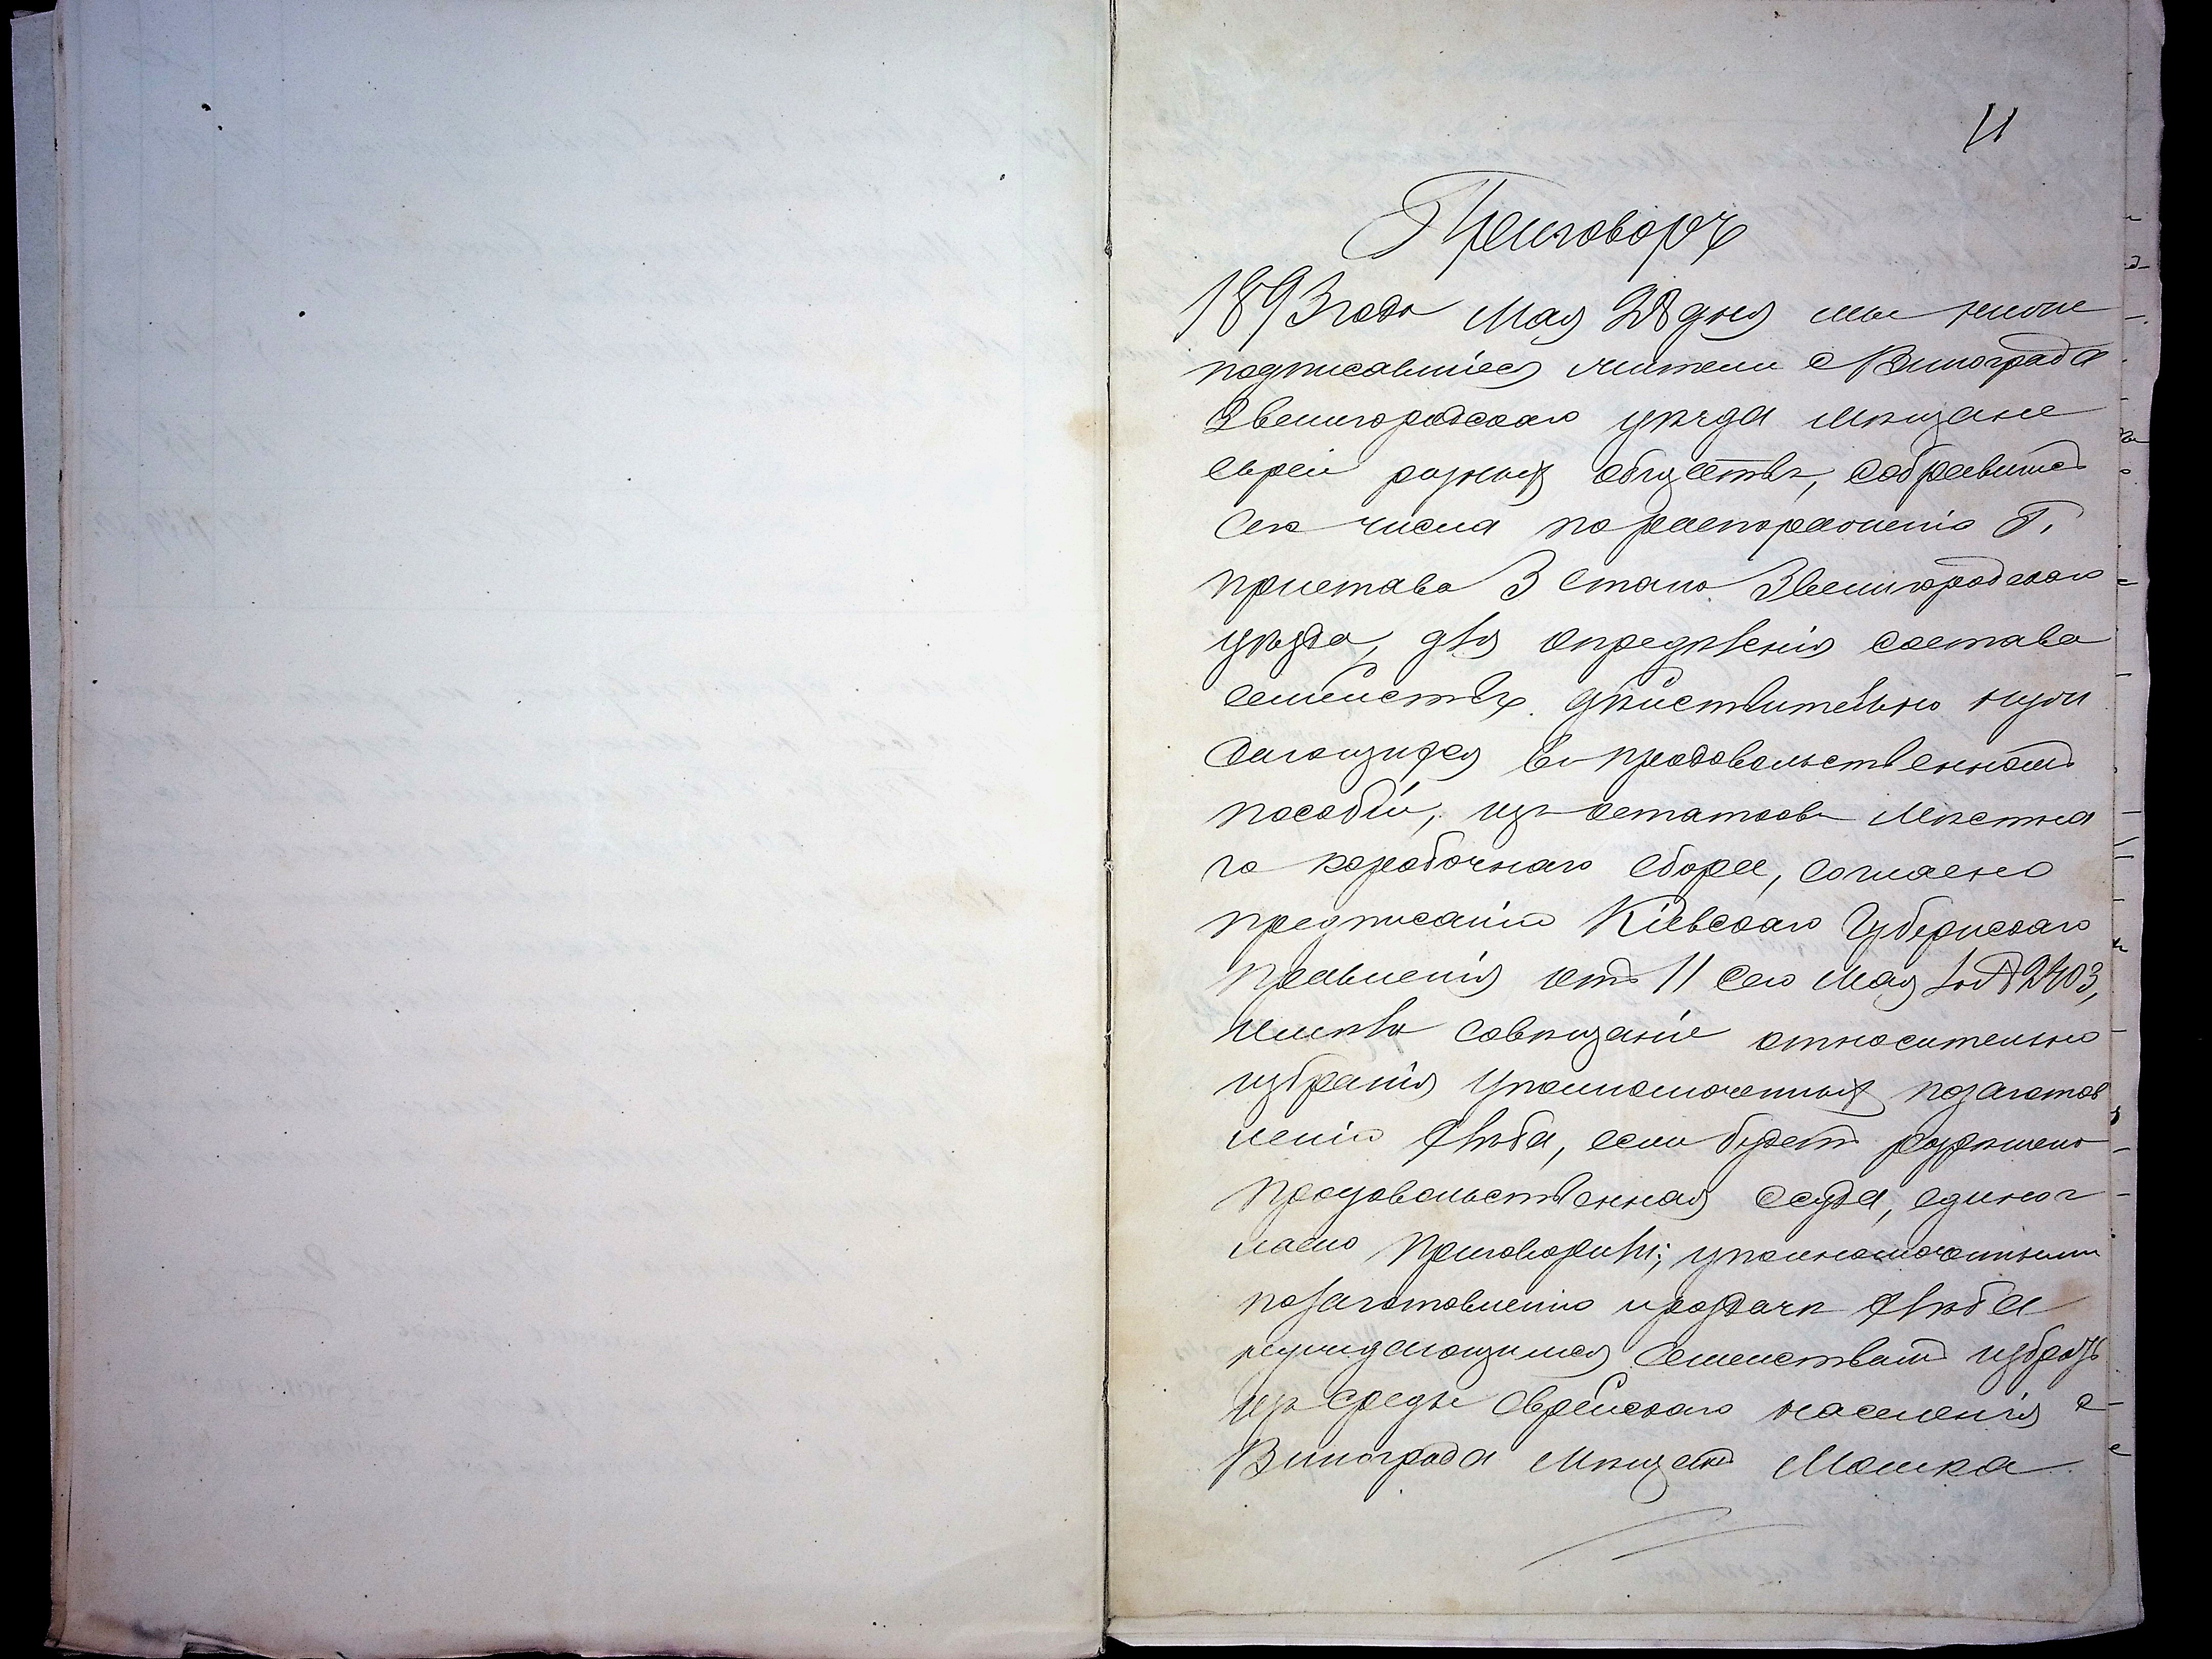 11
Приговоръ
1893 года Мая 28 дня мы ниже
подписавшіеся жители с Винограда
Звенигородскаго уѣзда мѣщане
евреи разных обществъ, собравшись
сего числа по распоряженію Г.
пристава 3 стана Звенигородскаго
уѣзда, для опредѣленія состава
семействъ действительно нуж
дающихся въ продовольственномъ
пособіи, изъ остатковъ мѣстна
го коробочнаго сбора, согласно
предписанію Кіевскаго Губернскаго
Правленія отъ 11 сего Мая за № 2403,
имѣли совѣщаніе относительно
избранія уполномоченных по заготов
ленію хлѣба, если будетъ разрѣшено
продовольственная ссуда, единог
ласно приговорили; уполномоченными
по заготовленію и роздачѣ хлѣба
нуждающимся семействамъ избрать
изъ среды еврейскаго населенія с
Винограда мѣщанъ Мошка